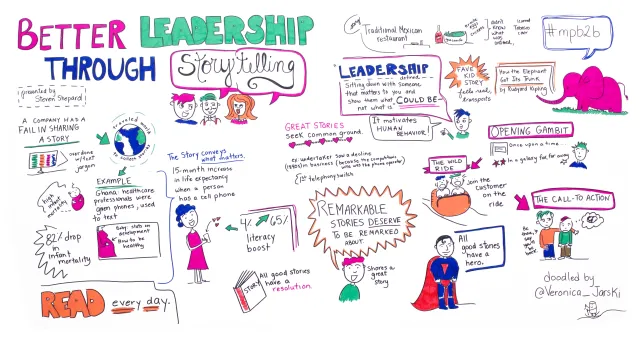 BETTER LEADERSHIP
THROUGH
Storytelling
presented by
Steven Shepard
A COMPANY HAS A
FAIL IN SHARING
A STORY
overdone
w/text
jargon
traveled world
to collect stories
EXAMPLE
high
mortality
Ghana: healthcare
professionals were
given phones, used
to text
Baby: stats on
development
How to be
healthy
82% drop
in
infant
mortality
READ every day.
The Story conveys
what matters.
15-month increase
in life expectancy
when a person
has a cell phone
4% 65%
literacy
boost
STORY
All good stories
have a
resolution.
GREAT STORIES
SEEK common ground.
ex: undertaker saw a decline
(1980s) in business (because the competitor's
wife was the phone operator)
1st telephony switch
REMARKABLE
STORIES DESERVE
TO BE REMARKED
ABOUT.
Shares a
great
story
Traditional Mexican
restaurant
didn't
know
what
was
LEADERSHIP
defined
Sitting down with someone
that matters to you and
show them what COULD BE-
not what is
It motivates
HUMAN
BEHAVIOR!
FAVE
KID
STORY
#mpb2b
How the Elephant
Got Its Trunk
by Rudyard Kipling
OPENING GAMBIT
Once upon a time...
In a galaxy far, far away
THE WILD
RIDE
Join the
customer
on the
ride
All
good stories
have a
hero.
THE CALL-TO ACTION
doodled by
@Veronica_Jarski